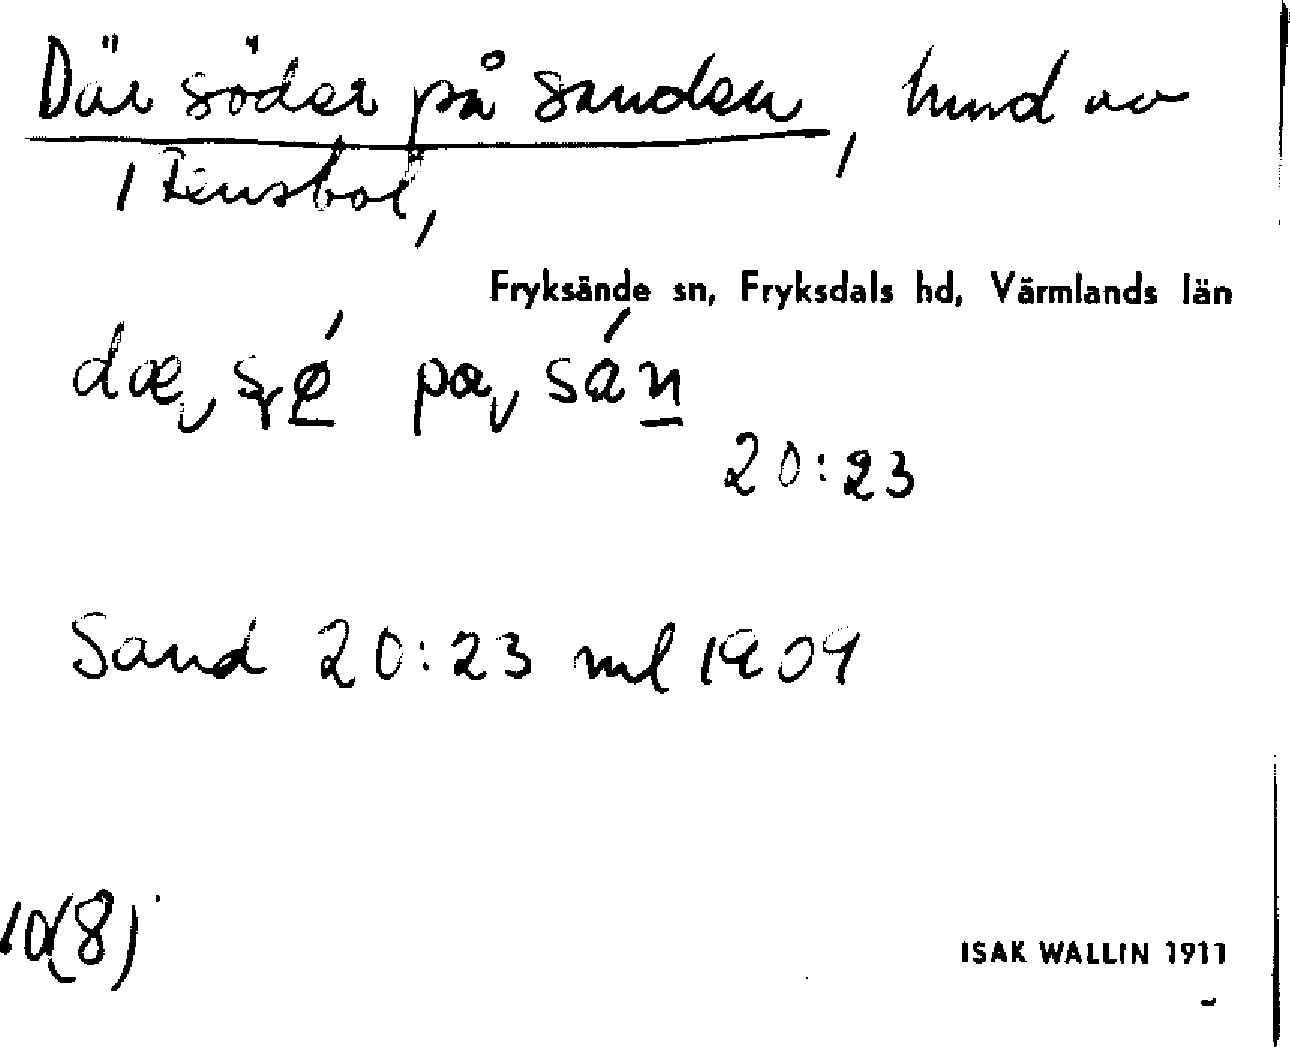 Där söder på sanden, hmd av
1 Stensbol,
Fryksände sn, Fryksdals hd, Värmlands län
20:23
Sand 20:23 ml 1909
10(8)
ISAK WALLIN 1911